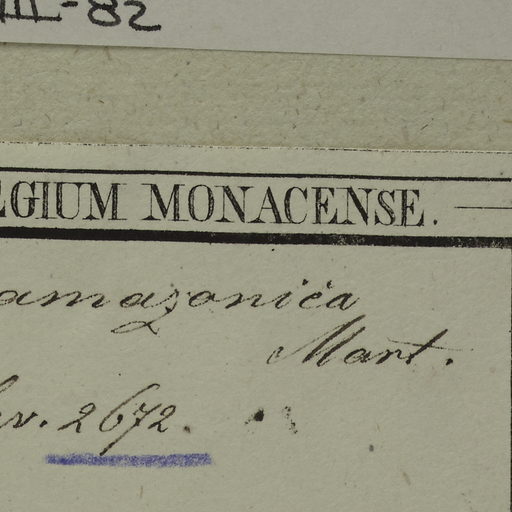 III-82
EGIUM MONACENSE.
amazonica
Mart.
v. 2672.